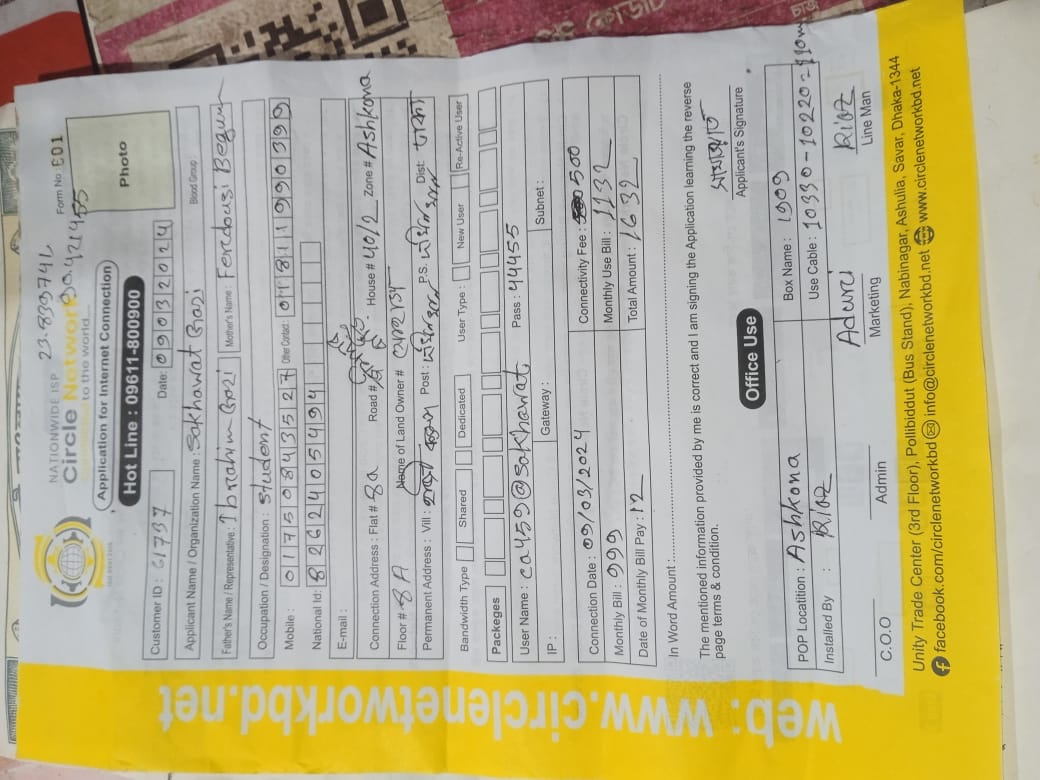 NATIONWIDE ISP 23.839741
Circle Network 90.421455 Form No: 601
to the world...
Application for Internet Connection
Photo
Hot Line : 09611-800900
Customer ID : 61737 Date: 09032024
Applicant Name / Organization Name : Sakhawat Gazi Blood Group
Father's Name / Representative: Ibrahim Gazi Mother's Name: Ferdousi Begum
Occupation / Designation : Student
Mobile : 01750843527 Other Contact: 01811990399
National Id: 8262405494
E-mail :
Connection Address : Flat # 8a Road # House # 40/2 Zone # Ashkona
Floor # 8A Name of Land Owner #
Permanent Address : Vill : Post : P.S. Dist: ঢাকা
Bandwidth Type Shared Dedicated User Type : New User Re-Active User
Packeges
User Name : ca459@sakhawat Pass : 44455
IP : Gateway : Subnet :
Connection Date : 09/03/2024 Connectivity Fee : 500
Monthly Bill : 999 Monthly Use Bill : 1132
Date of Monthly Bill Pay : 12 Total Amount : 1632
In Word Amount :
The mentioned information provided by me is correct and I am signing the Application learning the reverse
page terms & condition.
Applicant's Signature
Office Use
POP Locatition : Ashkona Box Name : 1909
Installed By : Riaz Use Cable : 10330-10220=110m
Aduri Riaz
C.O.O Admin Marketing Line Man
Unity Trade Center (3rd Floor), Pollibiddut (Bus Stand), Nabinagar, Ashulia, Savar, Dhaka-1344
facebook.com/circlenetworkbd info@circlenetworkbd.net www.circlenetworkbd.net
web: www.circlenetworkbd.net